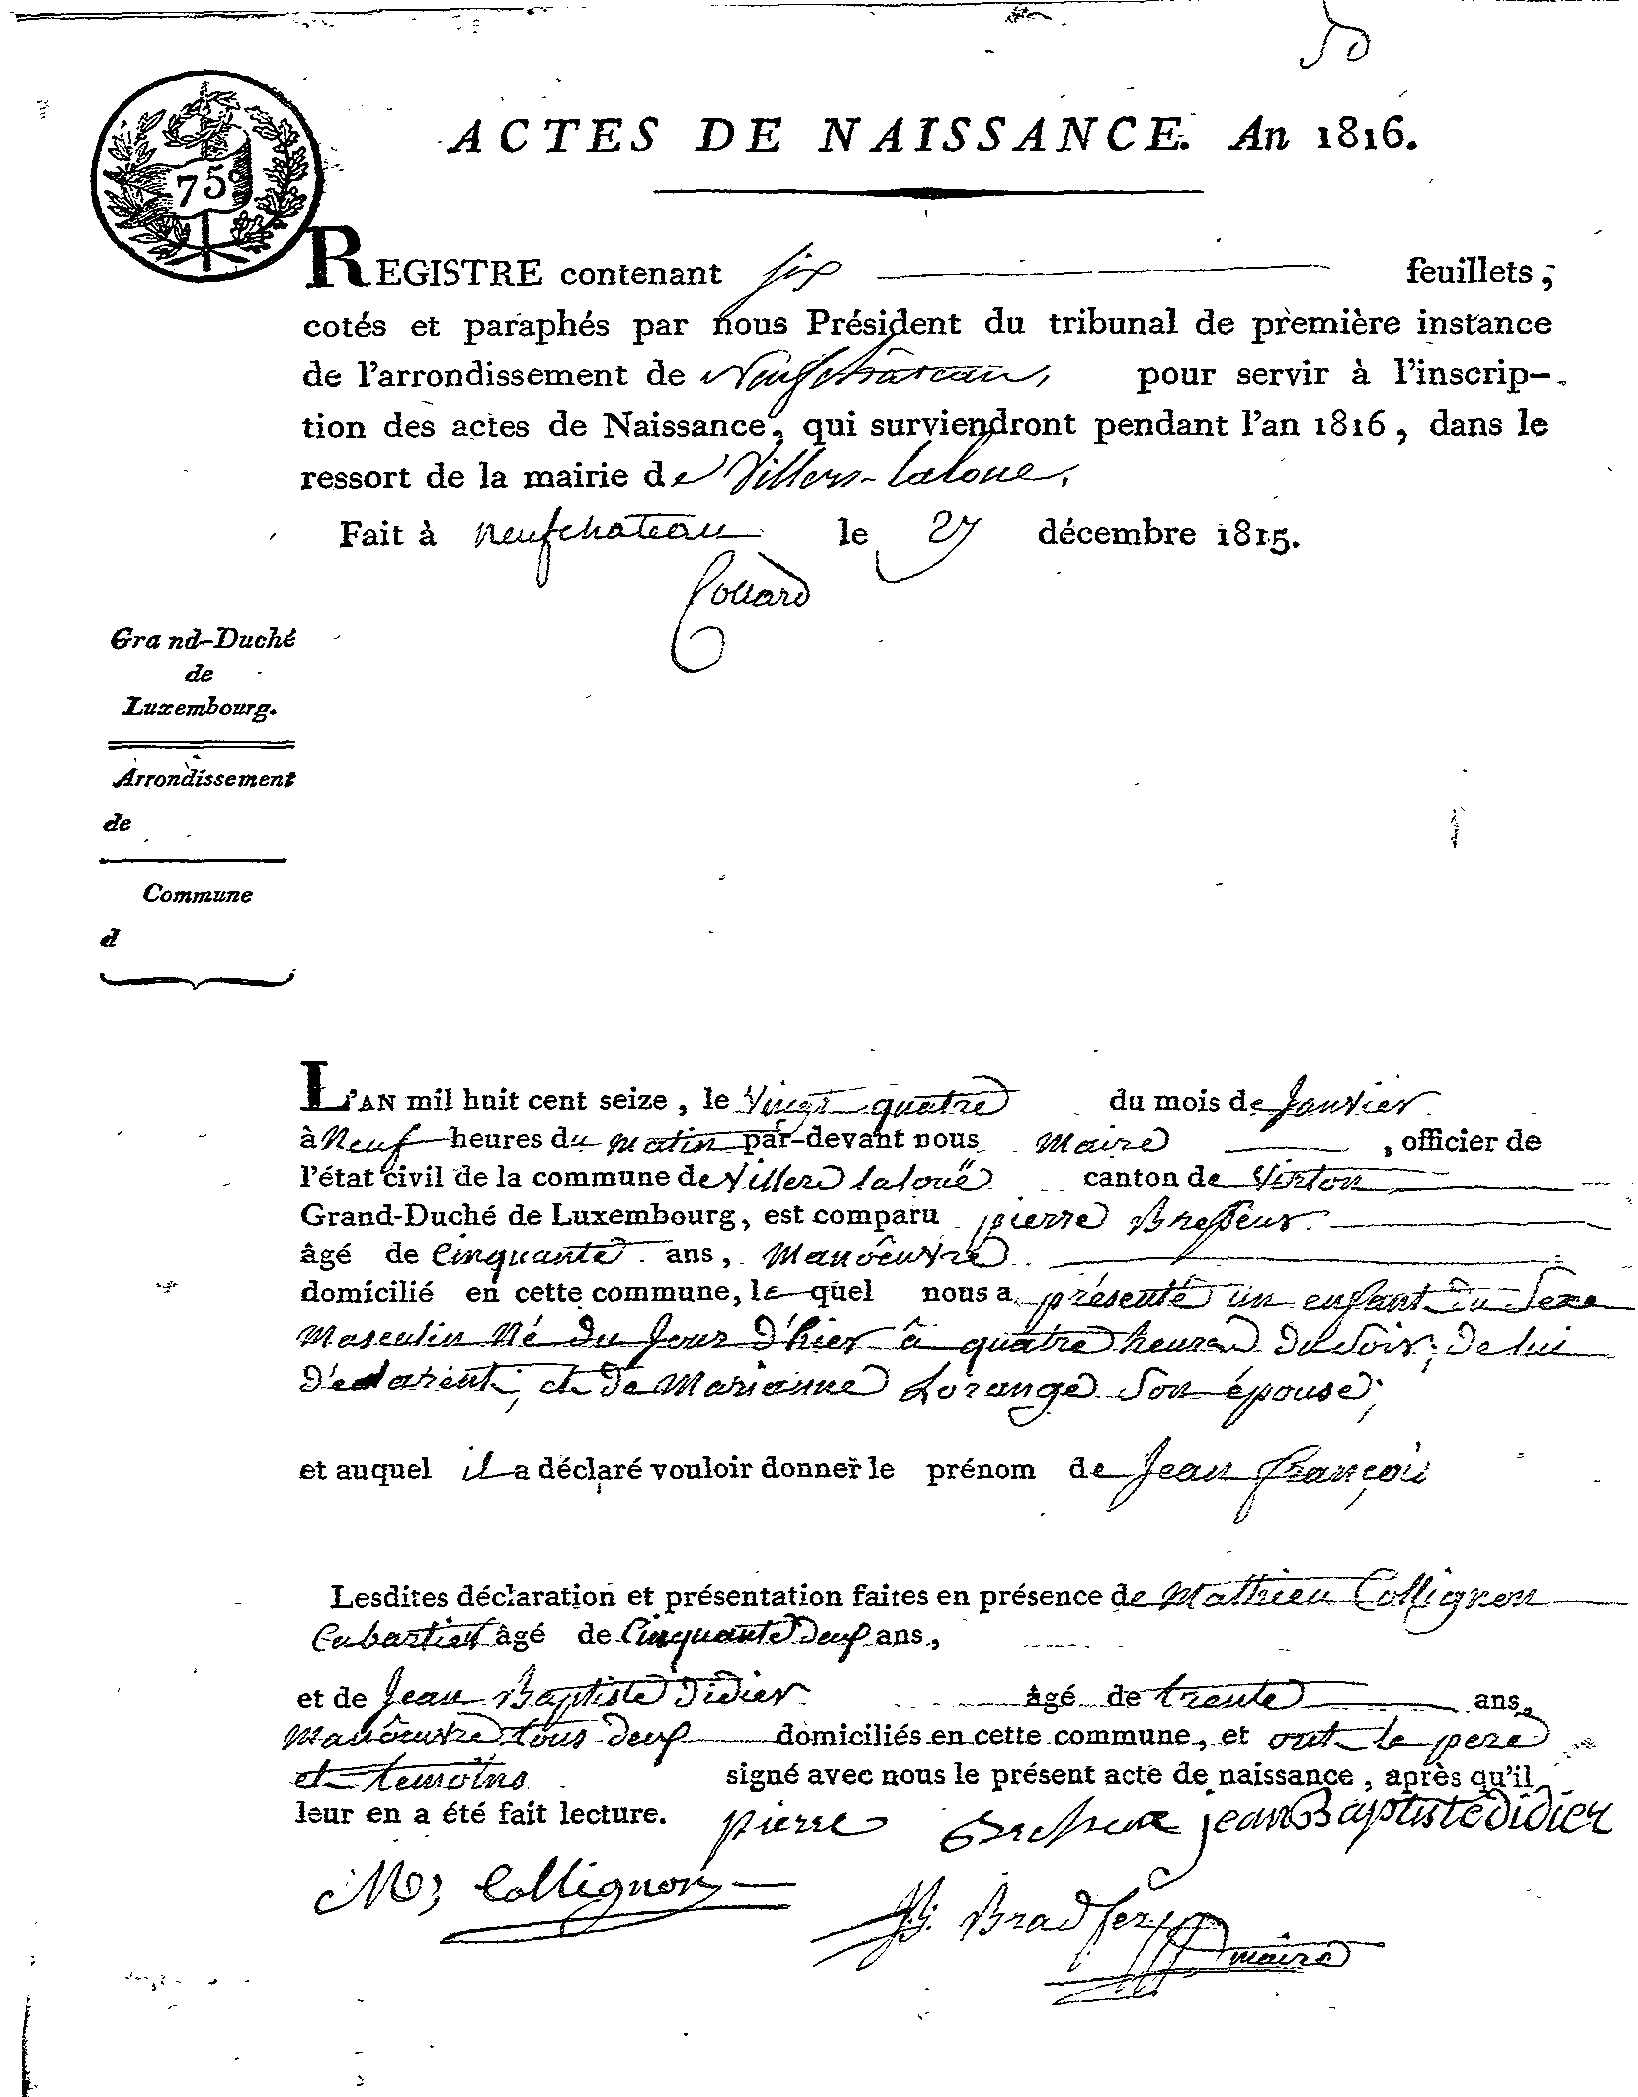 50
ACTES DE NAISSANCE. An 1816.
75c
REGISTRE contenant six feuillets,
cotés et paraphés par nous Président du tribunal de première instance
de l'arrondissement de Neufchâteau, pour servir à l'inscrip-
tion des actes de Naissance, qui surviendront pendant l'an 1816, dans le
ressort de la mairie de Villers-laloue,
Fait à neufchateau le 27 décembre 1815.
Collard
Grand-Duché
de
Luxembourg.
Arrondissement
de
Commune
d
L'AN mil huit cent seize, le Vingt quatre du mois de Janvier
à Neuf heures du matin par-devant nous maire, officier de
l'état civil de la commune de Villers laloüe canton de Virton
Grand-Duché de Luxembourg, est comparu pierre Bresseur
âgé de Cinquante ans, Manôeuvre
domicilié en cette commune, le quel nous a présenté un enfant du Sexe
Masculin Né du Jour d'hier â quatre heures du Soir; de lui
déclarent, et de Marianne Lorange Son épouse;
et auquel il a déclaré vouloir donner le prénom de Jean françois
Lesdites déclaration et présentation faites en présence de Mathieu Collignon
Cabartier âgé de Cinquante Deux ans,
et de Jean Baptiste Didier âgé de trente ans,
Manôeuvre tous deux domiciliés en cette commune, et ont le pere
et temoins signé avec nous le présent acte de naissance, après qu'il
leur en a été fait lecture. pierre jean Baptiste didier
M; Collignon
maire